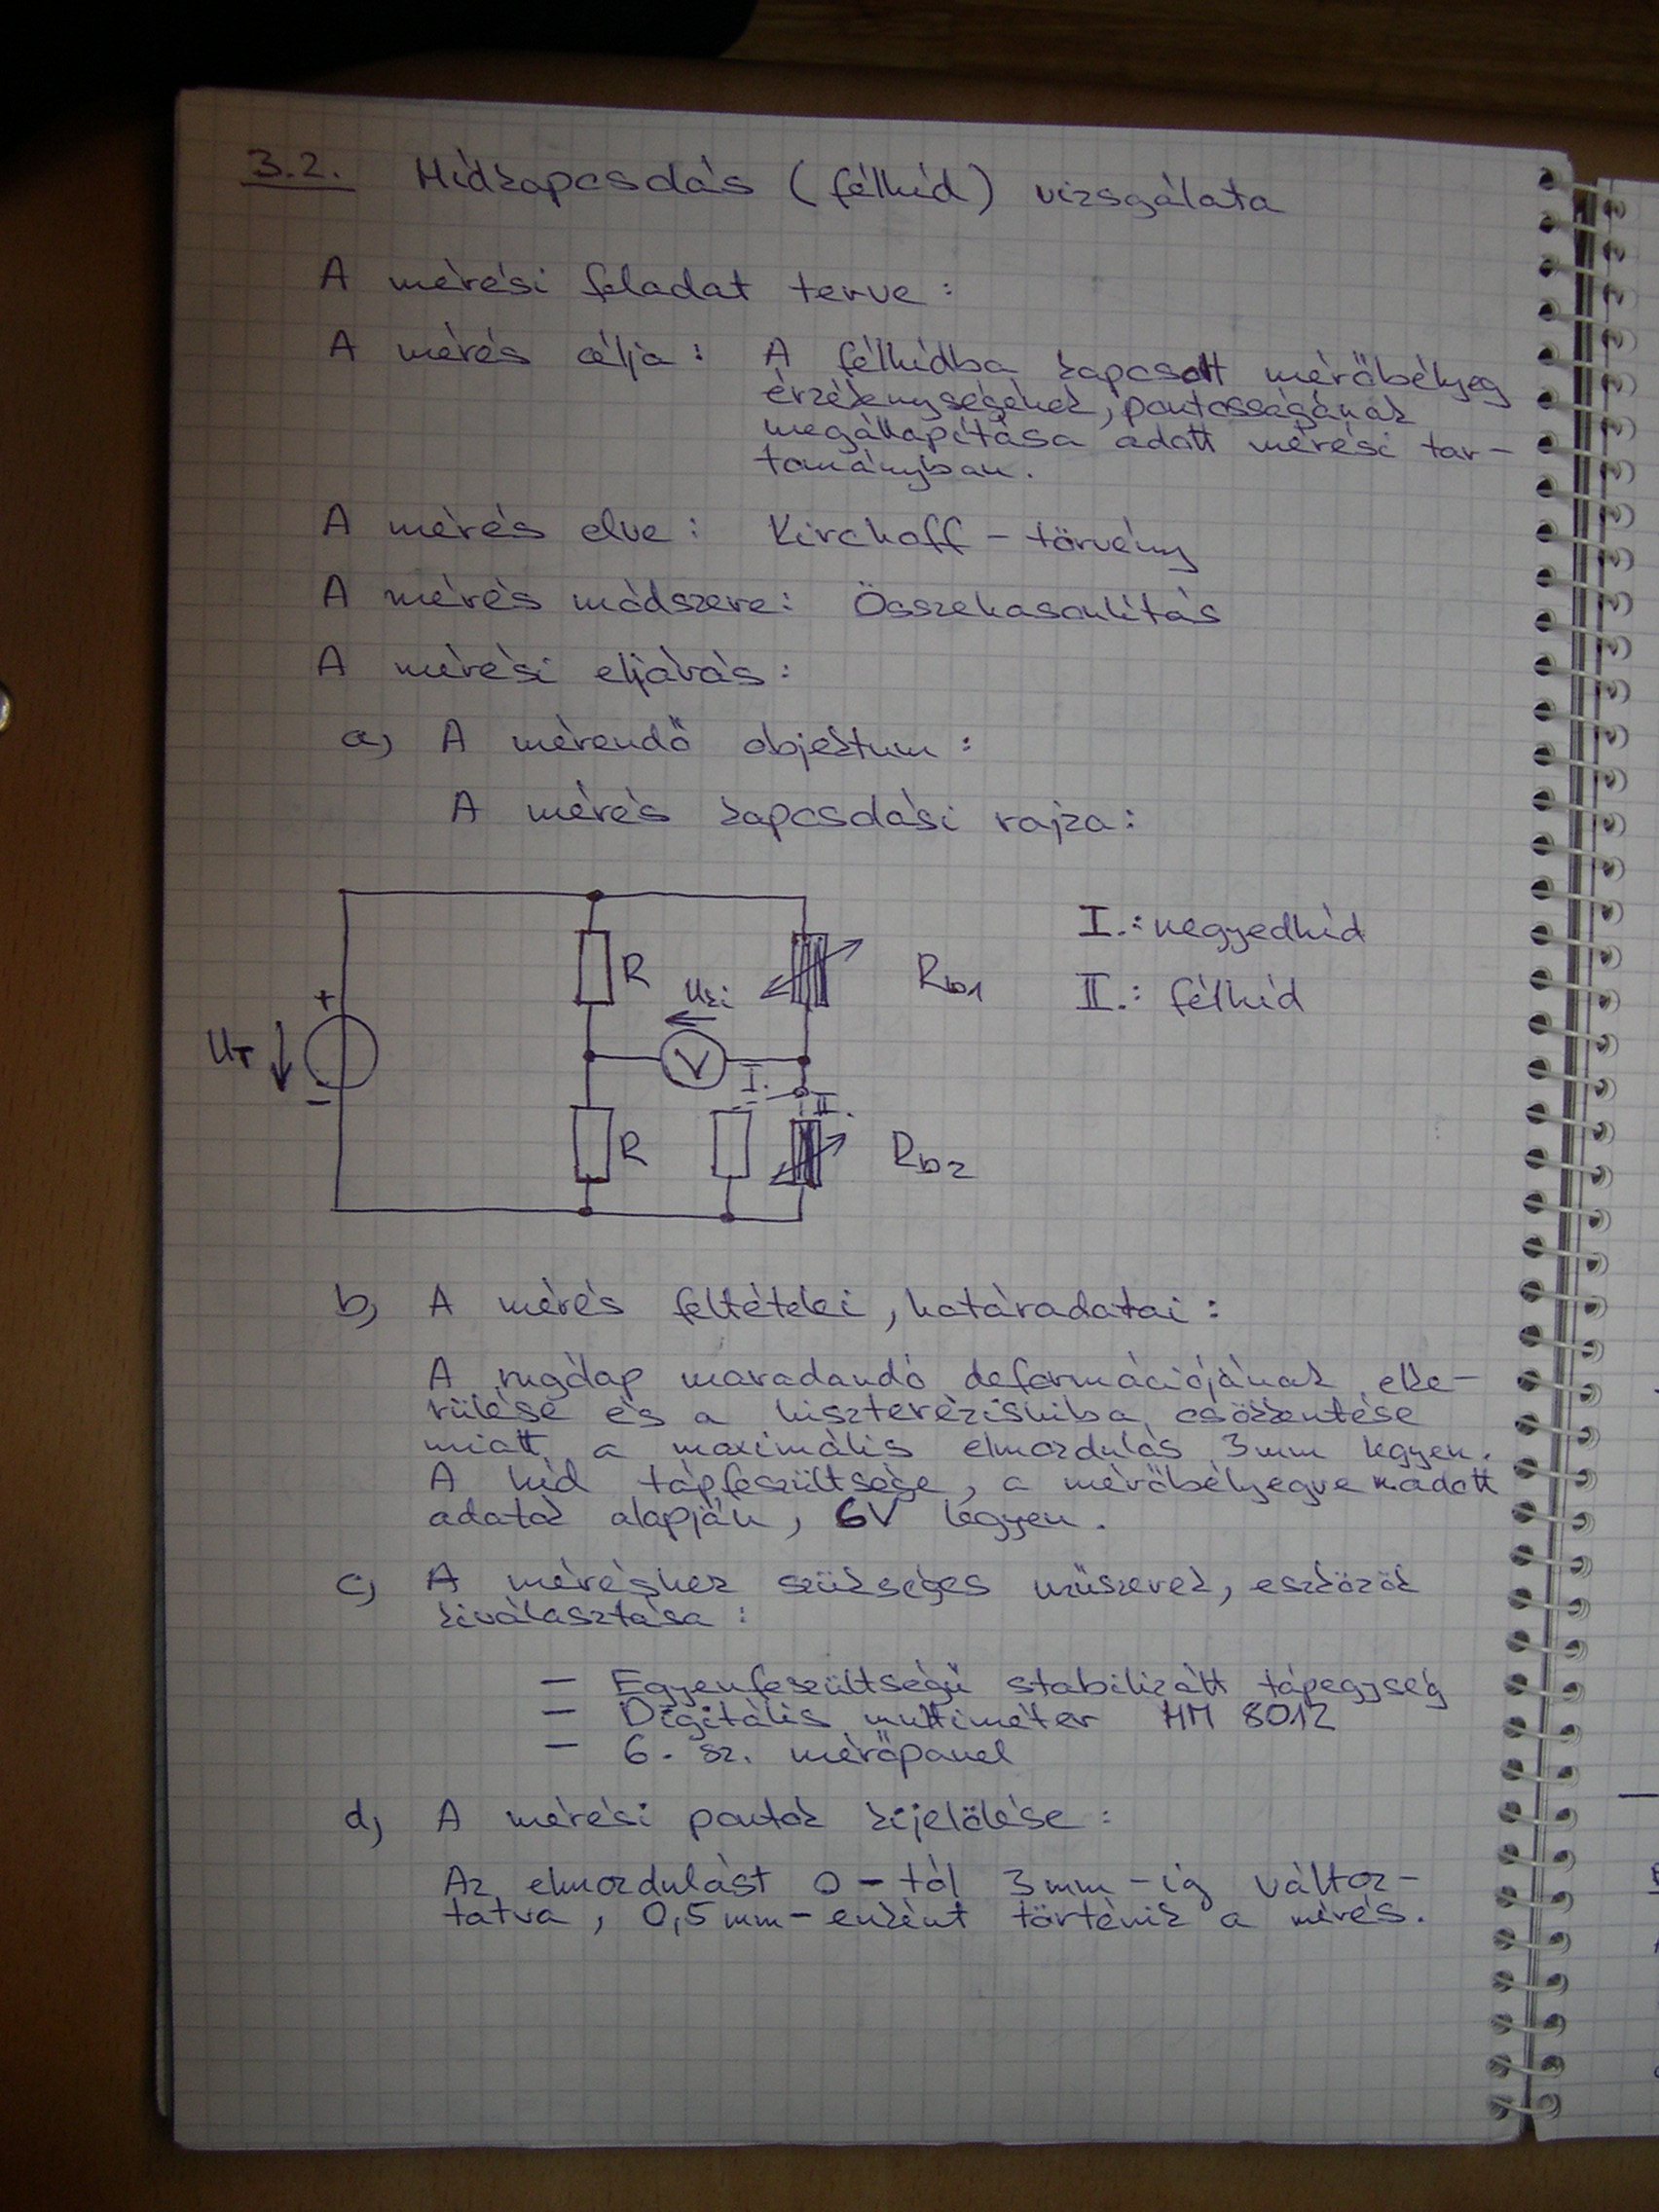 3.2. Hídkapcsolás (félhíd) vizsgálata
A mérési feladat terve:
A mérés célja: A félhídba kapcsolt mérőbélyeg
érzékenységének, pontosságának
megállapítása adott mérési tar-
tományban.
A mérés elve: Kirchoff - törvény
A mérés módszere: Összehasonlítás
A mérési eljárás:
a, A mérendő objektum:
A mérés kapcsolási rajza:
I.: negyedhíd
R Uki Rb1
II.: félhíd
+
UT
V
I.
-
II.
R Rb2
b, A mérés feltételei, határadatai:
A rugólap maradandó deformációjának elke-
rülése és a hiszterézishiba csökkentése
miatt a maximális elmozdulás 3mm legyen.
A híd tápfeszültsége, a mérőbélyegre madott
adatok alapján, 6V legyen.
c, A méréshez szükséges műszerek, eszközök
kiválasztása:
- Egyenfeszültségű stabilizált tápegység
- Digitális multiméter HM 8012
- 6. sz. mérőpanel
d, A mérési pontok kijelölése:
Az elmozdulást 0-tól 3mm-ig változ-
tatva, 0,5mm-enként történik a mérés.